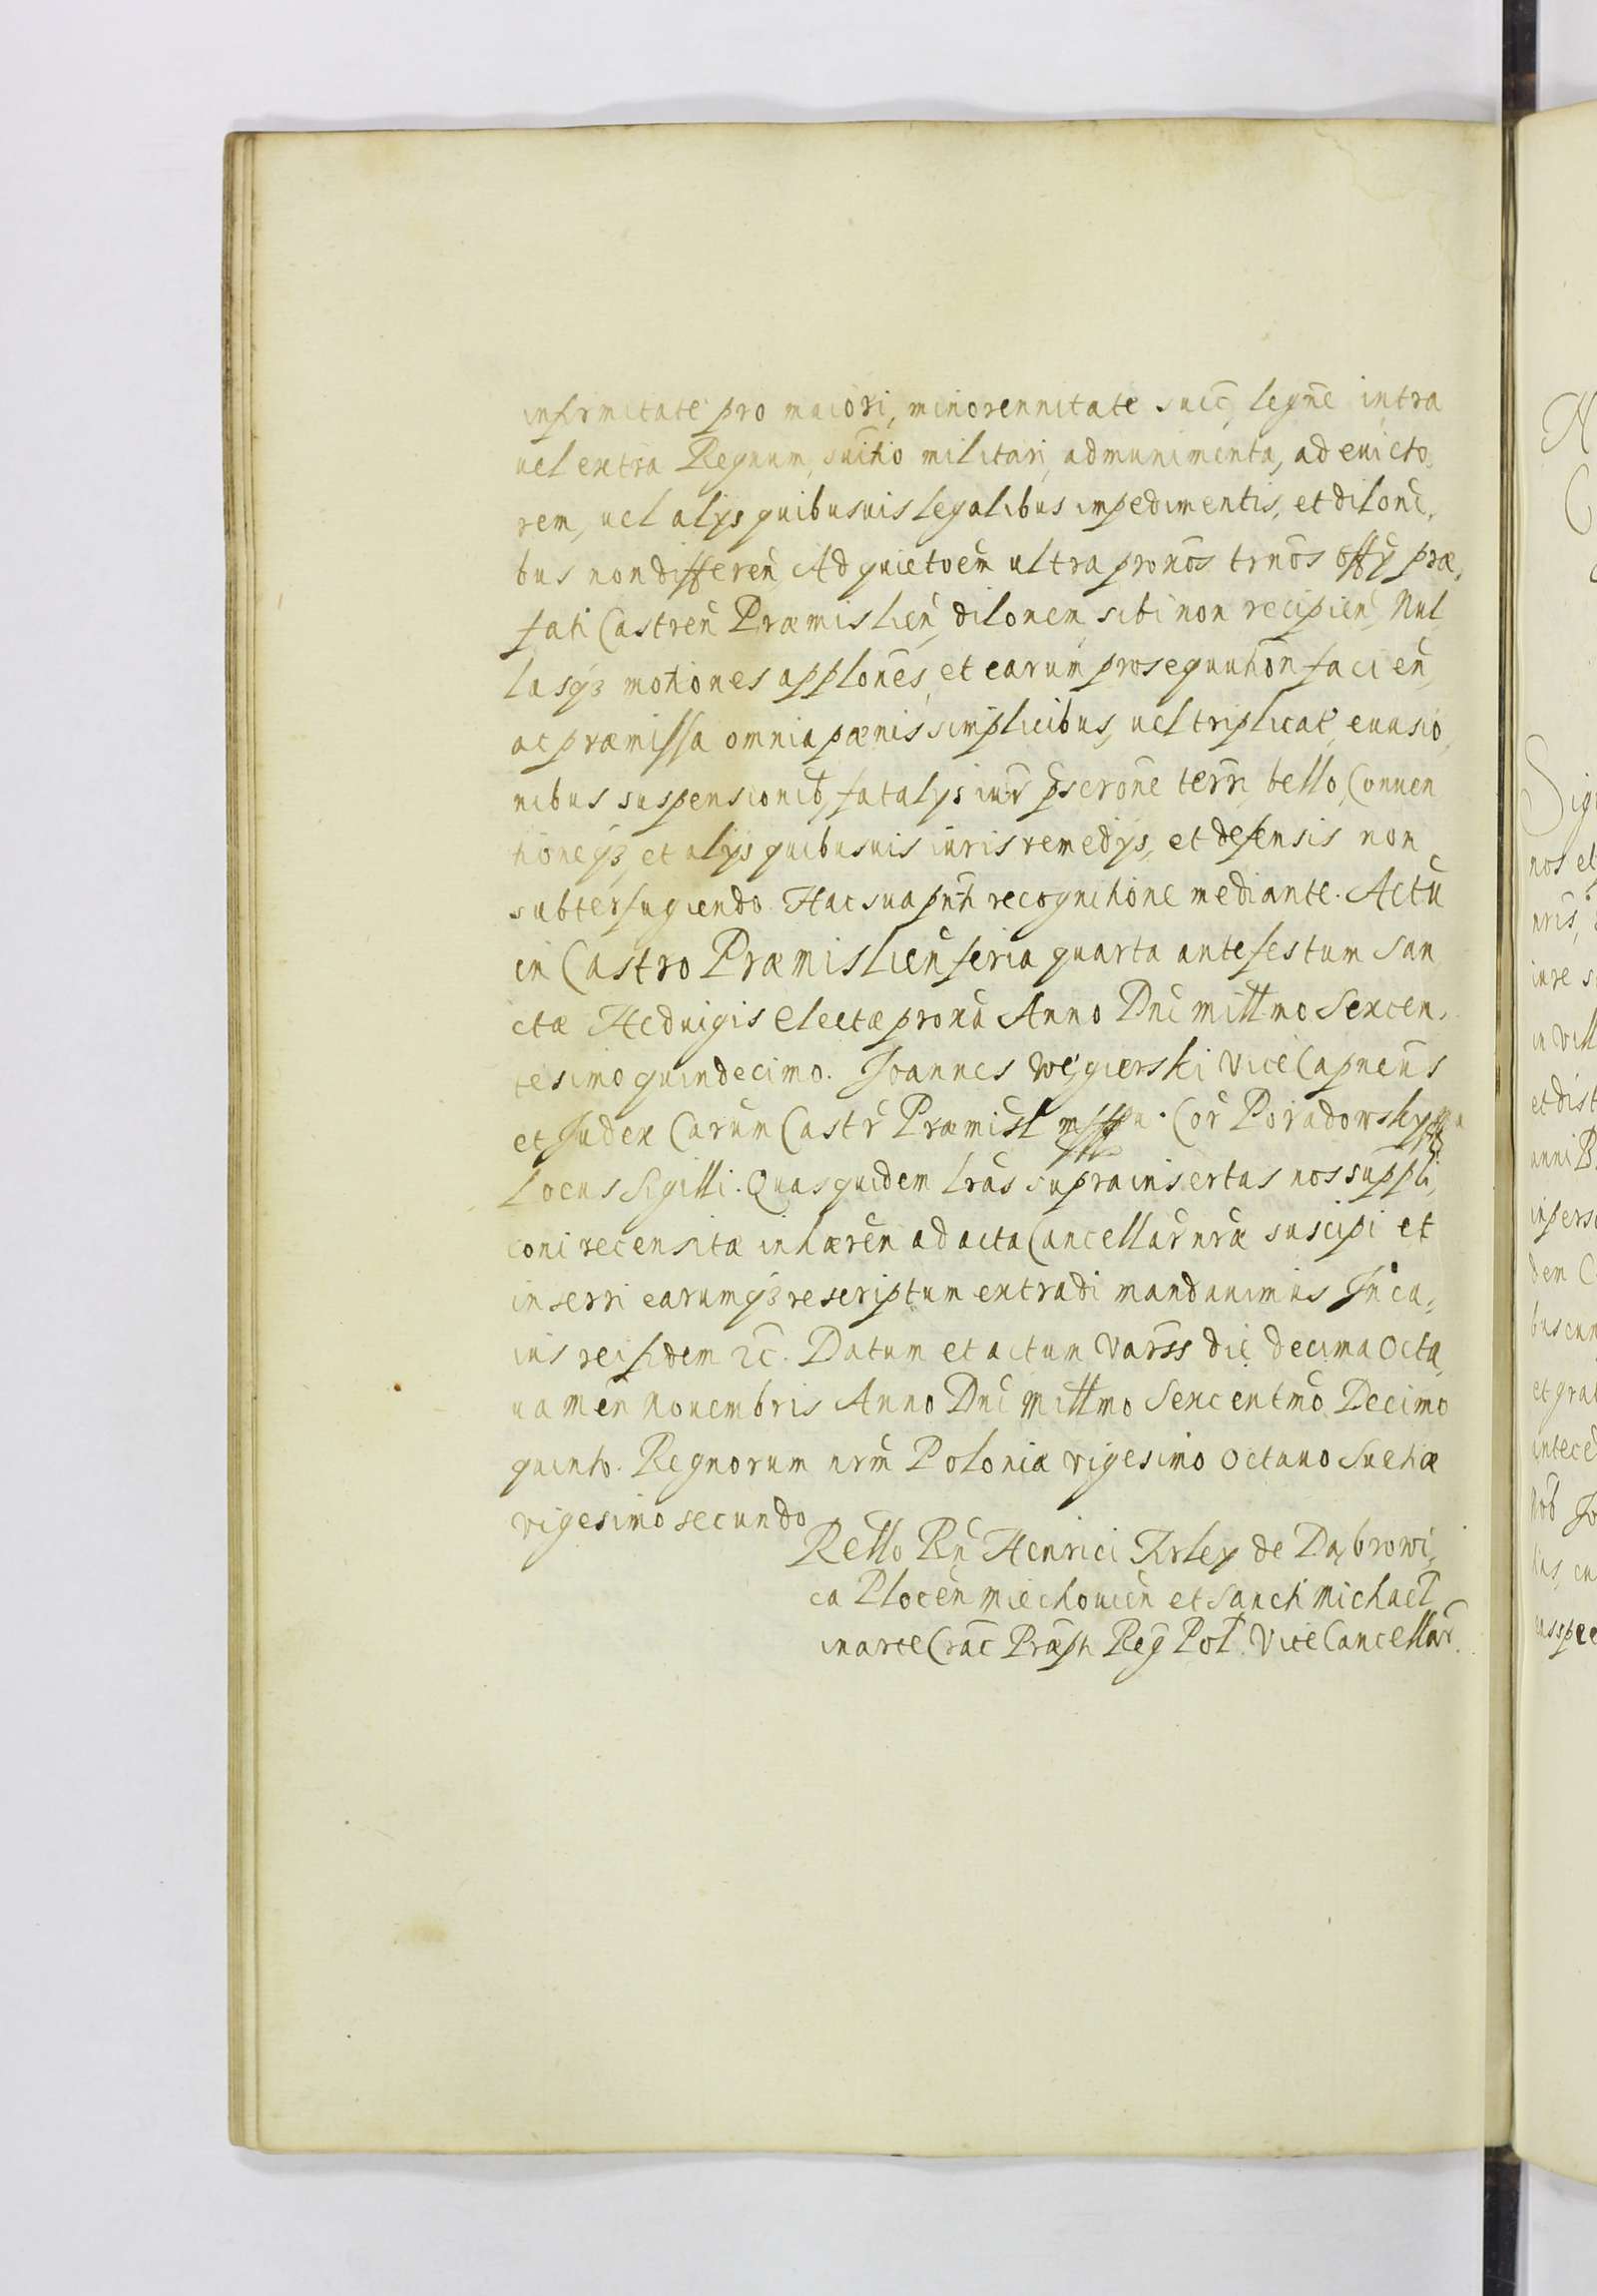 infirmitate pro maiori, minorennitate succ, legne intra
uel extra Regnum, suitio militari, ad munimenta, ad euicto,
rem, uel alys quibusuis legalibus impedimentis, et diloni,
bus non differen Ad quietoem ultra pronos trnos offy præ,
fati Castren Præmislien, dilonem sibi non recipien, Nul
lasqz motiones applones, et earum prosequution facien,
ac præmissa omnia pœnis simplicibus, uel triplicat, euasio,
nibus suspensionib, fatalys iur pscrone terri, bello, Conuen
tioneqz, et alys quibusuis iuris remedys, et defensis non
subterfugiendo. Hac sua pnti recognitione mediante. Actu
in Castro Præmislien feria quarta ante festum San
ctæ Heduigis Electæ proxa Anno Dni Millmo Sexcen,
tesimo quindecimo. Joannes Węgierski ViceCapneus
et Judex Carum Castr Præmisl mppa. Cor Poradowsky
Locus Sigilli. Quas quidem lras supra insertas nos suppli,
coni recensitæ inhæren ad acta Cancellar nræ suscipi et
inserri earumqz rescriptum extradi mandauimus In cu,
ius rei fidem zc. Datum et actum Varss die decima Octa,
ua men Nouembris Anno Dni Millmo Sexcentmo Decimo
quinto. Regnorum nrm Poloniæ vigesimo Octauo Suetiæ
vigesimo secundo
Rello Rn Henrici Firley de Dąbrowi,
ca Plocen Miechouien et Sancti Michael
in arce Crac Præpti Reg Pol. ViceCancellar.
nos et
nris,
iure s
in Vill
et dist
anni B
in pers
dem C
buscun
et grat
Nob Jo